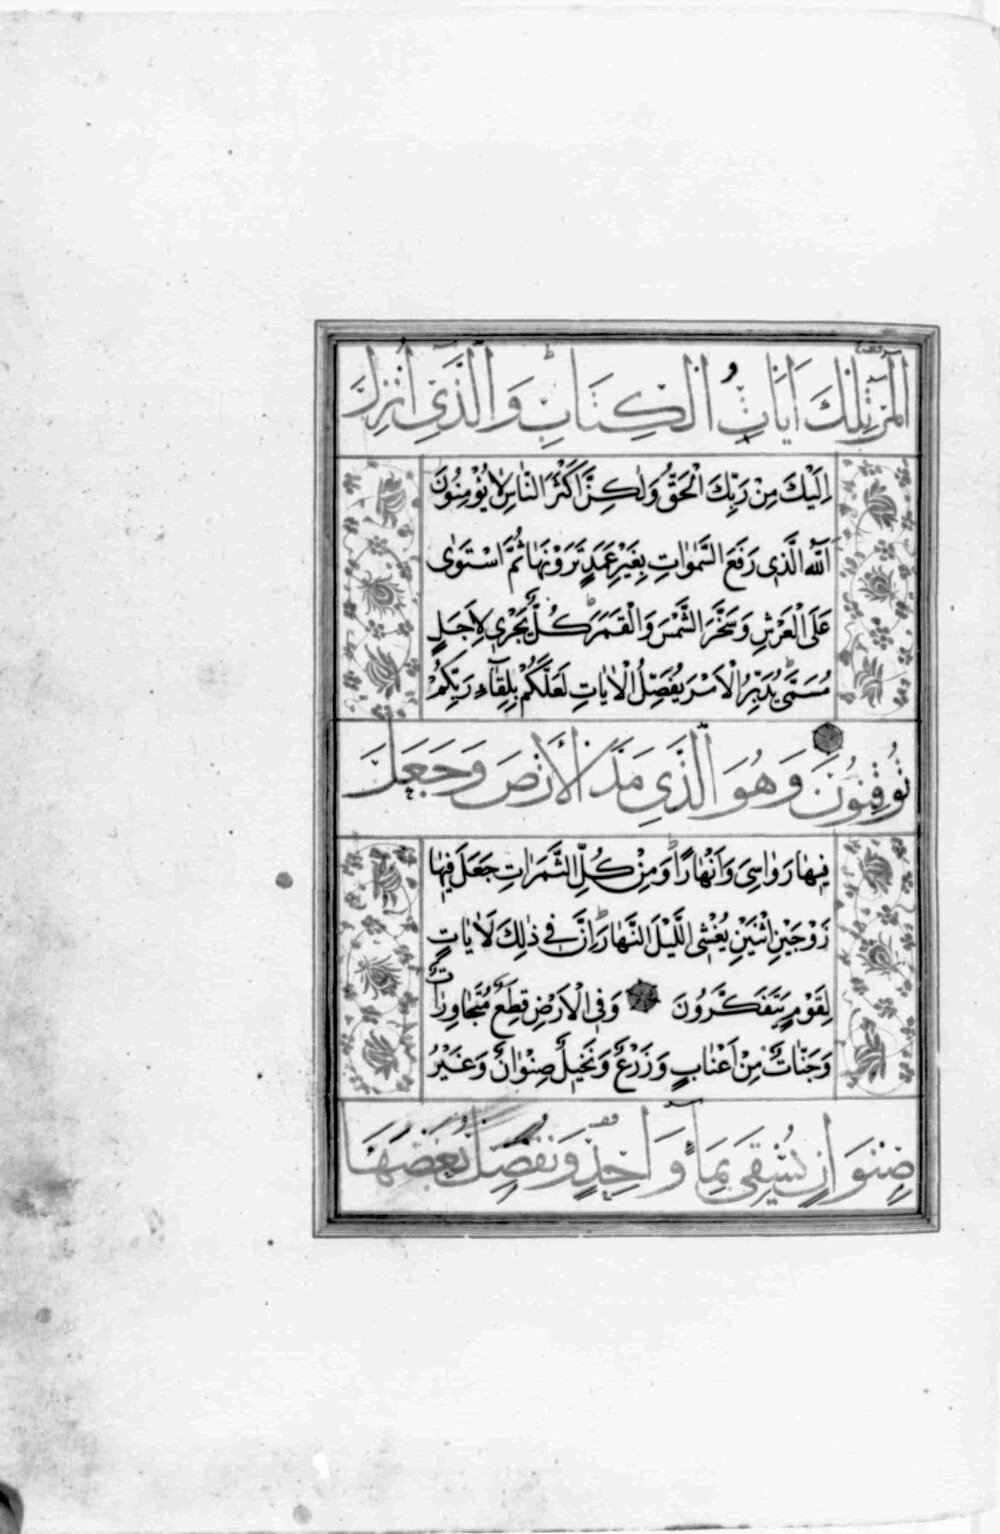 الٓمٓرٰ تِلْكَ اٰيَاتُ الْكِتَابِ وَالَّذِي اُنْزِلَ
اِلَيْكَ مِنْ رَبِّكَ الْحَقُّ وَلٰكِنَّ اَكْثَرَ النَّاسِ لَا يُؤْمِنُونَ
اَللّٰهُ الَّذِي رَفَعَ السَّمٰوَاتِ بِغَيْرِ عَمَدٍ تَرَوْنَهَا ثُمَّ اسْتَوٰى
عَلَى الْعَرْشِ وَسَخَّرَ الشَّمْسَ وَالْقَمَرَ كُلٌّ يَجْرِي لِاَجَلٍ
مُسَمًّى يُدَبِّرُ الْاَمْرَ يُفَصِّلُ الْاٰيَاتِ لَعَلَّكُمْ بِلِقَاۤءِ رَبِّكُمْ
تُوقِنُونَ وَهُوَ الَّذِي مَدَّ الْاَرْضَ وَجَعَلَ
فِيهَا رَوَاسِيَ وَاَنْهَارًا وَمِنْ كُلِّ الثَّمَرَاتِ جَعَلَ فِيهَا
زَوْجَيْنِ اثْنَيْنِ يُغْشِي اللَّيْلَ النَّهَارَ اِنَّ فِي ذٰلِكَ لَاٰيَاتٍ
لِقَوْمٍ يَتَفَكَّرُونَ وَفِي الْاَرْضِ قِطَعٌ مُتَجَاوِرَاتٌ
وَجَنَّاتٌ مِنْ اَعْنَابٍ وَزَرْعٌ وَنَخِيلٌ صِنْوَانٌ وَغَيْرُ
صِنْوَانٍ يُسْقَى بِمَاۤءٍ وَاحِدٍ وَنُفَضِّلُ بَعْضَهَا